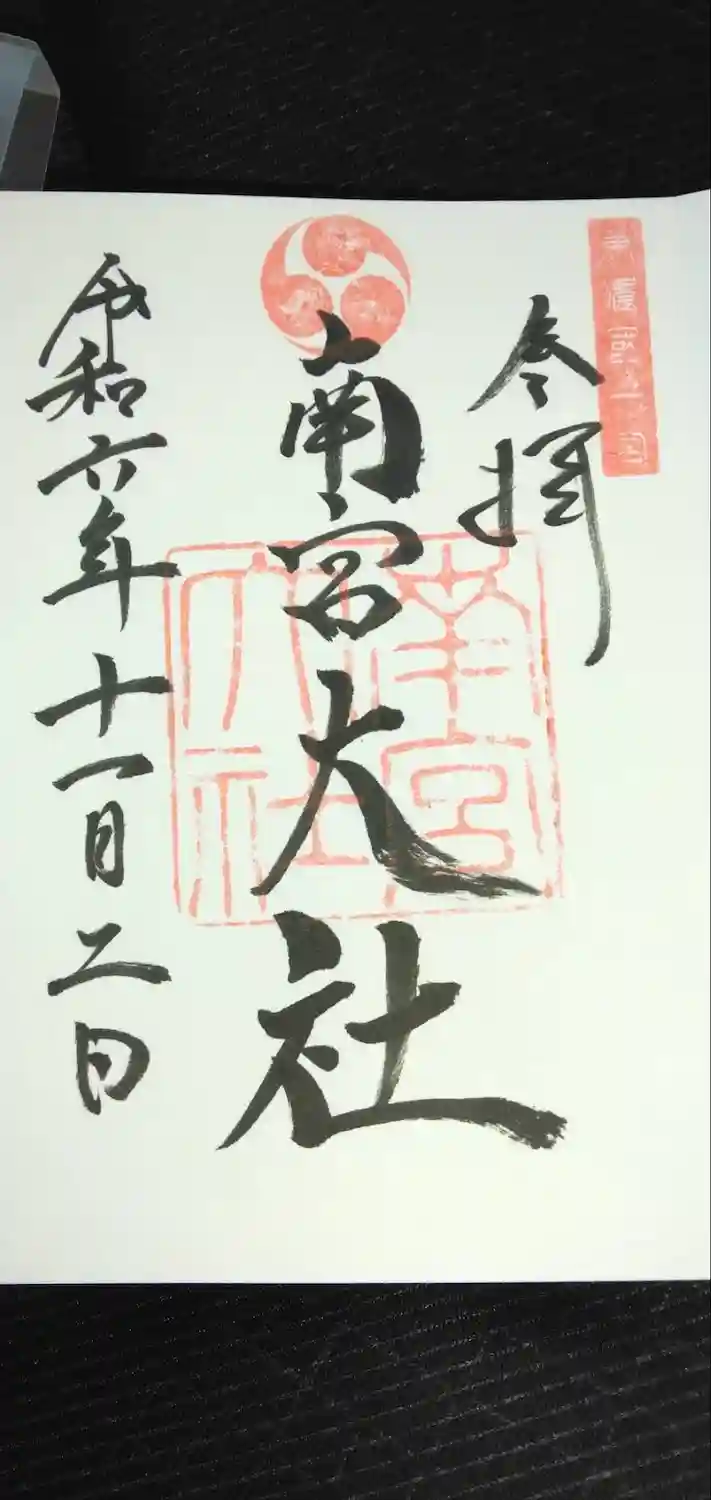 美濃国一宮
参拝
南宮大社
南宮大社
令和六年十一月二日